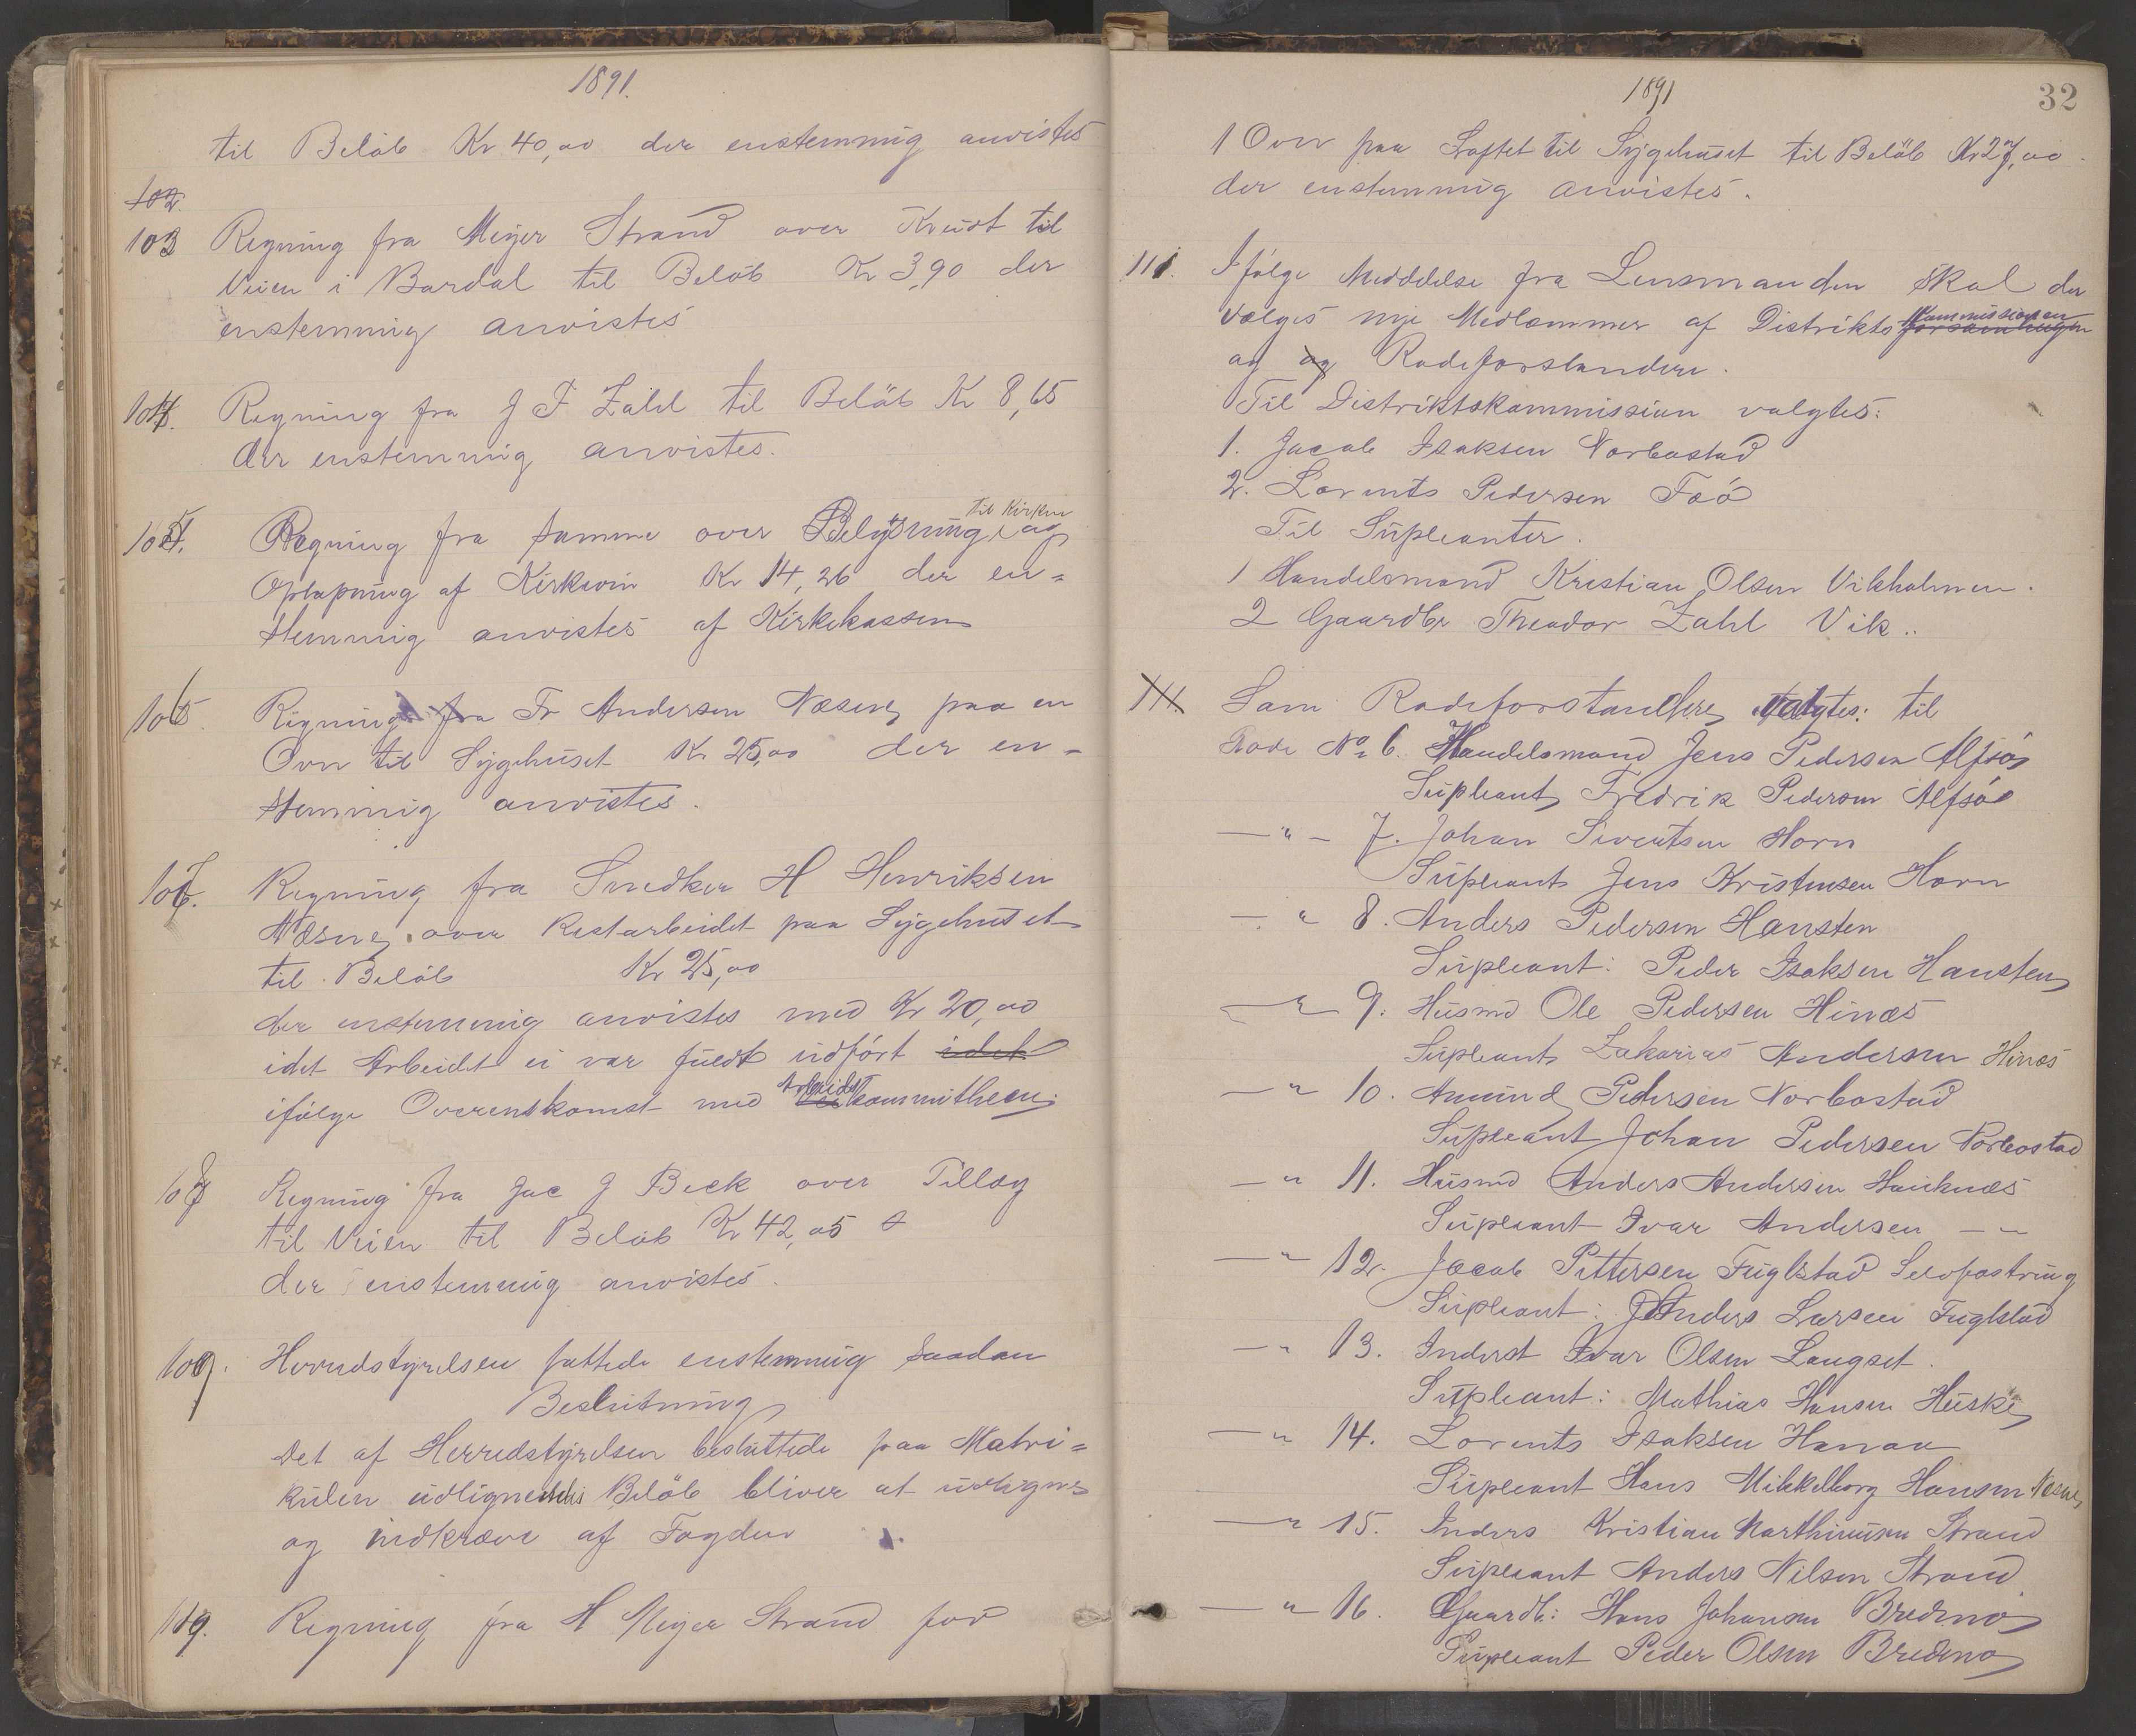 1891.
til Beløb Kr 40,00 der enstemmig anvistes
102.
103 Regning fra Meyer Strand over Krudt til
Veien i Bardal til Beløb Kr 3,90 der
enstemmig anvistes
104. Regning fra J F Zahl til Beløb Kr 8,65
der enstemmig anvistes.
105. Regning fra samme over Belysning til Kirken og
Optapning af Kirkevin Kr 14,26 der en=
stemmig anvistes af Kirkekassen
106 Regning fra Fr Andersen Næsne paa en
Ovn til Sygehuset Kr 25,00 der en=
stemmig anvistes.
107. Regning fra Snedker H Henriksen
Næsne over Restarbeidet paa Sygehuset
til Beløb Kr 25,00
der enstemmig anvistes med Kr 20,00
idet Arbeidet ei var fuldt udført idet
ifølge Overenskomst med Arbeidskommitheen.
108 Regning fra Jac J Beck over Tillæg
til Veien til Beløb Kr 42,05
der enstemmig anvistes.
109. Herredstyrelsen fattede enstemmig saadan
Beslutning
Det af Herredstyrelsen besluttede paa Matri=
kulen udlignendes Beløb bliver at udligne
og indkræve af Fogden
110. Regning fra H Meyer Strand for
1891
32
1 Ovn paa Loftet til Sygehuset til Beløb Kr 27,00.
der enstemmig anvistes.
111. Ifølge Meddelelse fra Lensmanden skal der
vælges nye Medlemmer af Distriktsforsamlingen kommissionen
og og Rodeforstandere.
Til Distriktskommission valgtes:
1. Jacob Isaksen Norbostad
2. Lorents Pedersen
Til Supleanter.
1 Handelsmand Kristian Olsen Vikholmen.
2 Gaardbr Theodor Zahl Vik..
111. Som Rodeforstandere valgtes: til
Rode No 6. Handelsmand Jens Pedersen Alfsø
Supleant Fredrik Pedersen Alfsø
—"— 7. Johan Siventsen Horn
Supleant Jens Kristensen Horn
—" 8. Anders Pedersen Hansten
Supleant: Peder Isaksen Hansten
—" 9. Husmd Ole Pedersen Hinæs
Supleant Zakarias Andersen Hinæs
—" 10. Amund Pedersen Norbostad
Supleant Johan Pedersen Norbostad
—" 11. Husmd Anders Andersen Hauknæs
Supleant Ivar Andersen — "
—" 12. Jacob Pettersen Fuglstad
Supleant: Anders Larsen Fuglstad
—" 13. Inderst Ivar Olsen Langset.
Supleant: Mathias Hansen Huske
—" 14. Lorents Isaksen
Supleant Hans Mikkelborg Hansen Næsne
—" 15. Inders Kristian Marthinusen Strand
Supleant Anders Nilsen Strand
—" 16. Gaardb: Hans Johansen Bredmo
Supleant Peder Olsen Bredmo